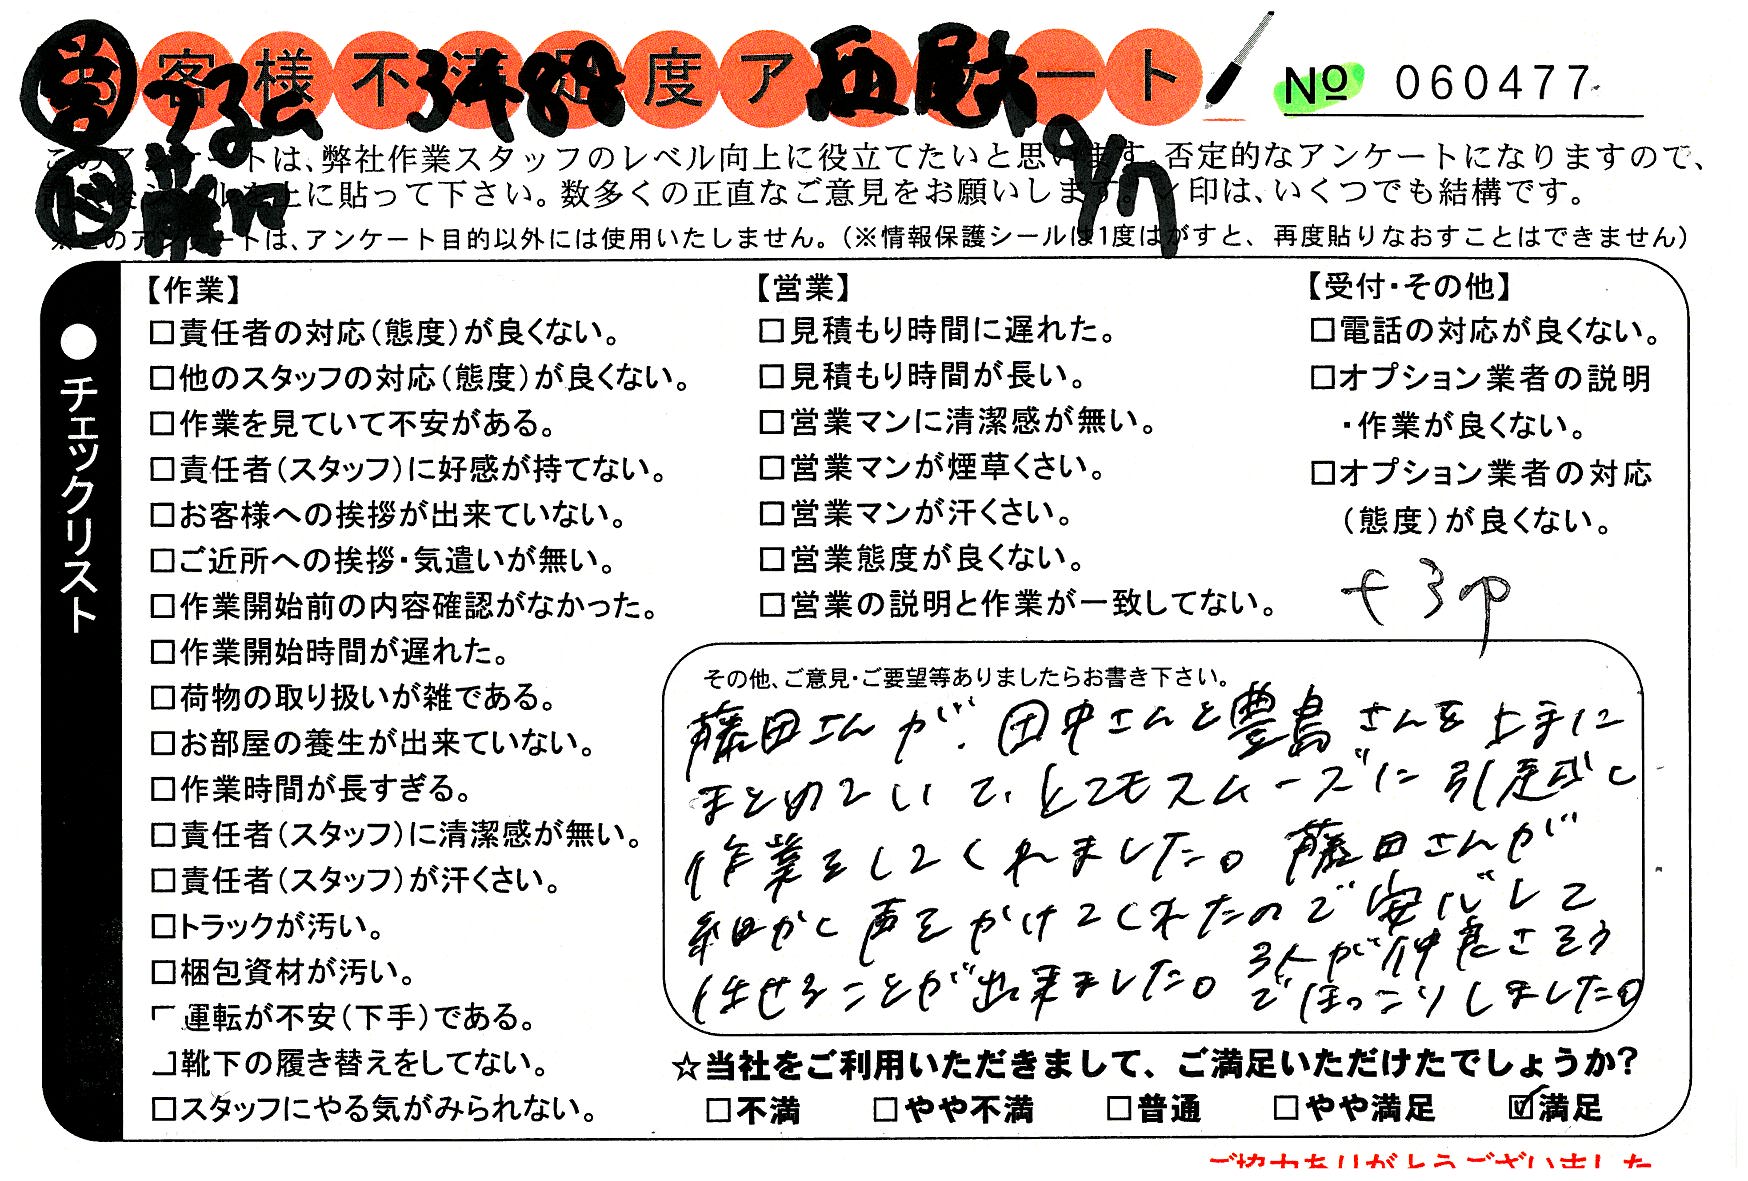 お客様不満足度アンケート
No 060477
3488 西尾
9/7
このアンケートは、弊社作業スタッフのレベル向上に役立てたいと思います。否定的なアンケートになりますので、
シールを上に貼って下さい。数多くの正直なご意見をお願いします。✓印は、いくつでも結構です。
※このアンケートは、アンケート目的以外には使用いたしません。(※情報保護シールは1度はがすと、再度貼りなおすことはできません)
●チェックリスト
【作業】
□責任者の対応(態度)が良くない。
□他のスタッフの対応(態度)が良くない。
□作業を見ていて不安がある。
□責任者(スタッフ)に好感が持てない。
□お客様への挨拶が出来ていない。
□ご近所への挨拶・気遣いが無い。
□作業開始前の内容確認がなかった。
□作業開始時間が遅れた。
□荷物の取り扱いが雑である。
□お部屋の養生が出来ていない。
□作業時間が長すぎる。
□責任者(スタッフ)に清潔感が無い。
□責任者(スタッフ)が汗くさい。
□トラックが汚い。
□梱包資材が汚い。
□運転が不安(下手)である。
□靴下の履き替えをしてない。
□スタッフにやる気がみられない。
【営業】
□見積もり時間に遅れた。
□見積もり時間が長い。
□営業マンに清潔感が無い。
□営業マンが煙草くさい。
□営業マンが汗くさい。
□営業態度が良くない。
□営業の説明と作業が一致してない。
【受付・その他】
□電話の対応が良くない。
□オプション業者の説明
・作業が良くない。
□オプション業者の対応
(態度)が良くない。
+3p
その他、ご意見・ご要望等ありましたらお書き下さい。
藤田さんが、田中さんと豊島さんを上手に
まとめていて、とてもスムーズに引越し
作業をしてくれました。藤田さんが
細かく声をかけてくれたので安心して
任せることが出来ました。3人が仲良さそう
でほっこりしました。
☆当社をご利用いただきまして、ご満足いただけたでしょうか?
□不満 □やや不満 □普通 □やや満足 ☑満足
ご協力ありがとうございました